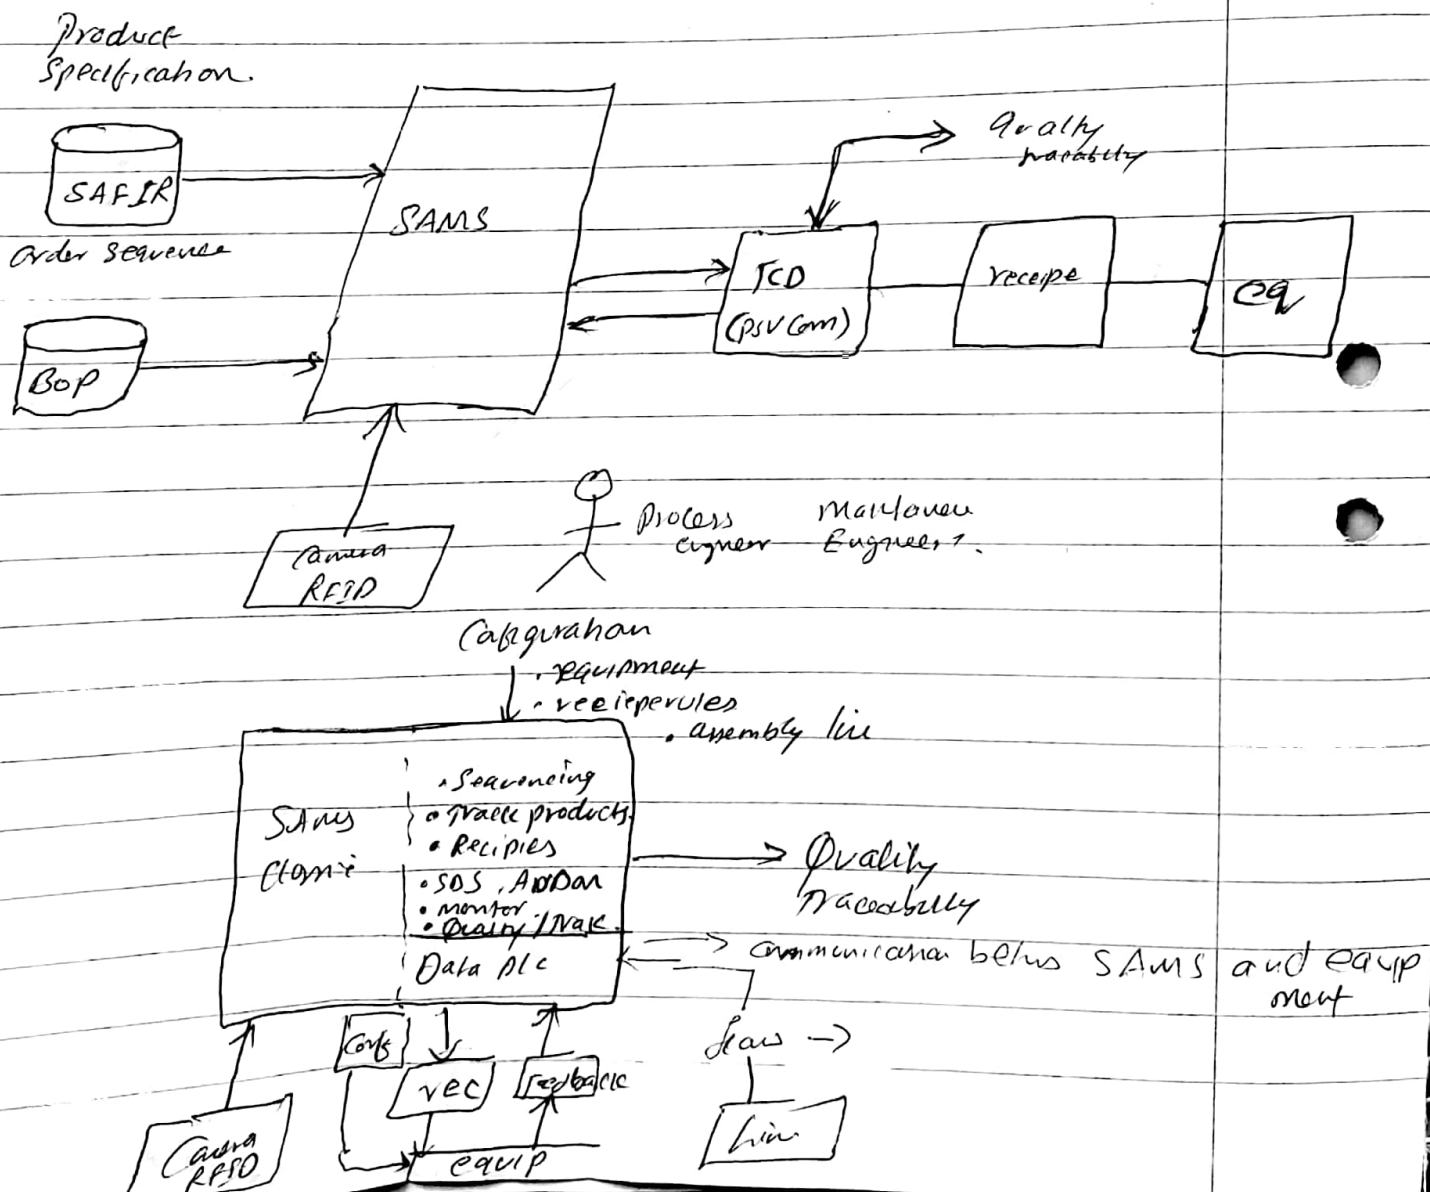 Product
Specification.
SAFIR
Order sequence
BOP
SAMS
Quality
traceability
TCD
(PSVCom)
receipe
eq
Camera
RFID
Process
engineer
Engineers.
Configuration
• equipment
• receiperules
• assembly line
SAMS
• Sequencing
• Track products.
• Recipies
• SDS, ANDon
• monitor
• Quality / Trak.
Data plc
Quality
Traceability
communication betws SAMS and equip
ment
Conf
rec
feedback
equip
Camera
RFID